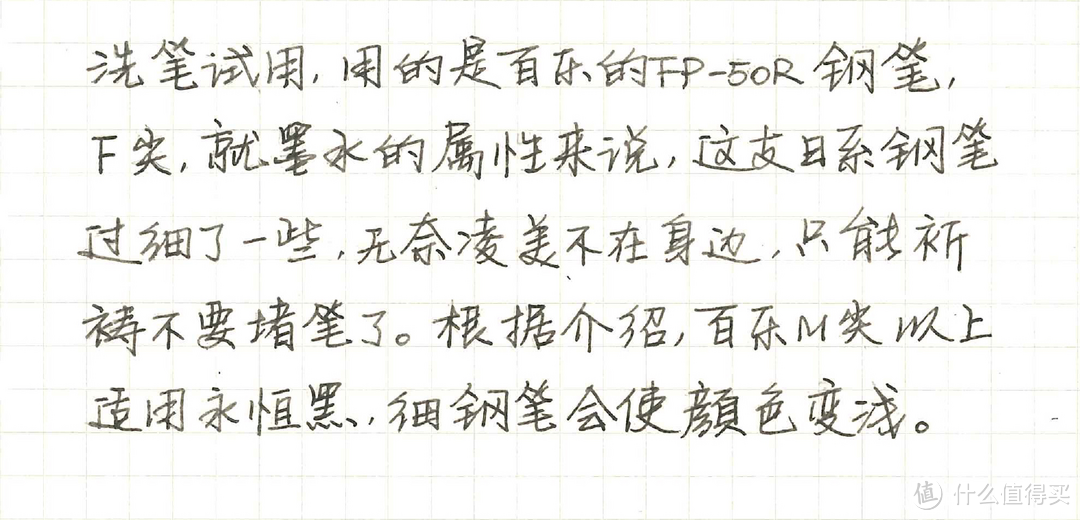 洗笔试用,用的是百乐的FP-50R 钢笔,
F尖,就墨水的属性来说,这支日系钢笔
过细了一些,无奈凌美不在身边,只能祈
祷不要堵笔了。根据介绍,百乐M尖以上
适用永恒黑,细钢笔会使颜色变浅。
值 什么值得买